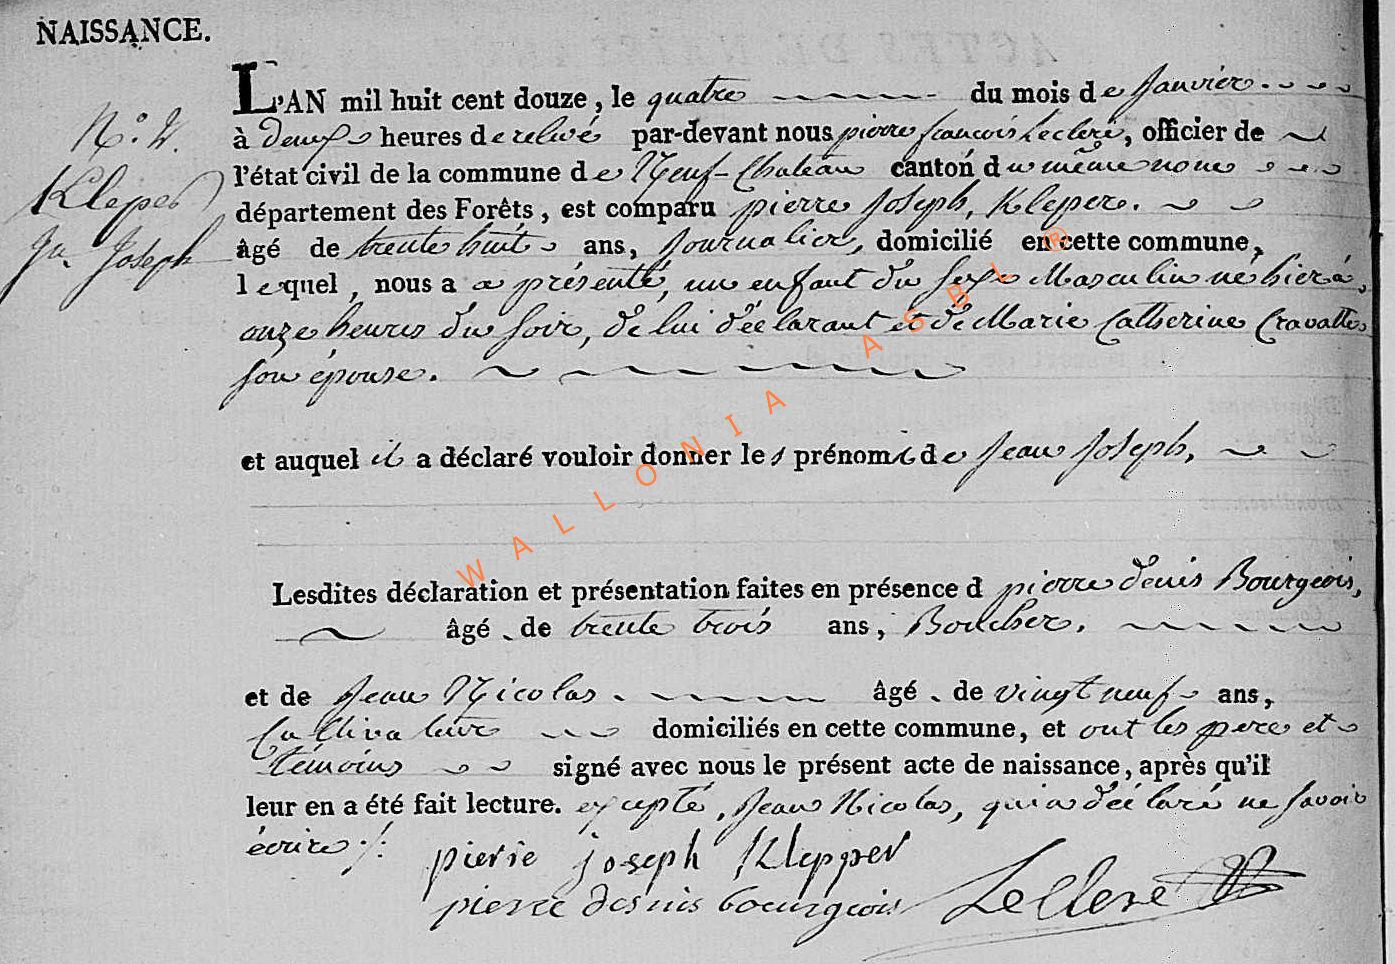 NAISSANCE.
L'AN mil huit cent douze, le quatre du mois de Janvier.
N.º 2.
à deux heures de relevé par-devant nous pierre françois Leclerc, officier de
Kleper
l'état civil de la commune de Neuf-Chateau canton du même nom
département des Forêts, est comparu pierre Joseph, Kleper.
Jn. Joseph
âgé de trente huit ans, Journalier, domicilié en cette commune,
lequel, nous a a présenté, un enfant du sexe Masculin né hier à
onze heures du soir, de lui déclarant et de Marie Catherine Cravatte
son épouse.
et auquel il a déclaré vouloir donner les prénoms de Jean Joseph,
Lesdites déclaration et présentation faites en présence d pierre denis Bourgeois,
âgé de trente trois ans, Boucher.
et de Jean Nicolas. âgé de vingt neuf ans,
Cultivateur domiciliés en cette commune, et ont les pere et
témoins signé avec nous le présent acte de naissance, après qu'il
leur en a été fait lecture. excepté, Jean Nicolas, qui a déclaré ne savoir
écrire ./.
pierre joseph Klepper
pierre denis bourgeois Leclerc
WALLONIA ASBL ®